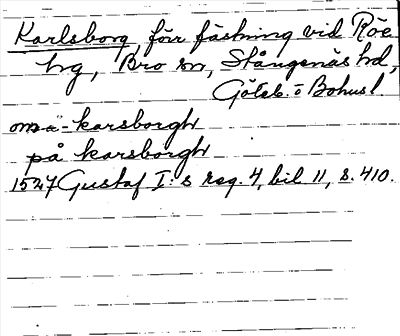 Karlsborg, förr fästning vid Röe
hg, Bro sn, Stångenäs hd,
Göteb. o Bohusl.
om ä - karsborgh
på karsborgh
1527 Gustaf I:s reg. 4, bil 11, s. 410.